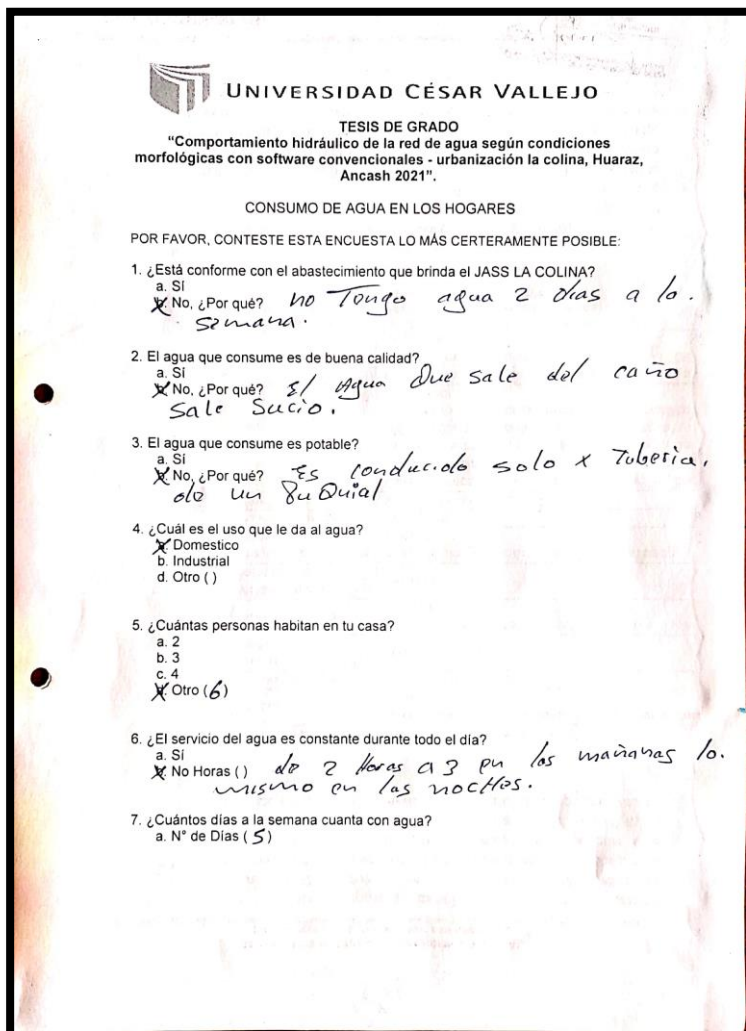 UNIVERSIDAD CÉSAR VALLEJO
TESIS DE GRADO
“Comportamiento hidráulico de la red de agua según condiciones
morfológicas con software convencionales - urbanización la colina, Huaraz,
Ancash 2021”.
CONSUMO DE AGUA EN LOS HOGARES
POR FAVOR, CONTESTE ESTA ENCUESTA LO MÁS CERTERAMENTE POSIBLE:
1. ¿Está conforme con el abastecimiento que brinda el JASS LA COLINA?
a. Sí
No, ¿Por qué? no Tengo agua 2 dias a la.
semana.
2. El agua que consume es de buena calidad?
a. Sí
No, ¿Por qué? El Agua Que sale del caño
sale Sucio.
3. El agua que consume es potable?
a. Sí
No, ¿Por qué? Es conducido solo x Tuberia.
de un PuQuial
4. ¿Cuál es el uso que le da al agua?
Domestico
b. Industrial
d. Otro ( )
5. ¿Cuántas personas habitan en tu casa?
a. 2
b. 3
c. 4
Otro (6)
6. ¿El servicio del agua es constante durante todo el día?
a. Sí
No Horas ( ) de 2 Horas a 3 en las mañanas lo.
mismo en las nocHes.
7. ¿Cuántos días a la semana cuanta con agua?
a. N° de Días (5)